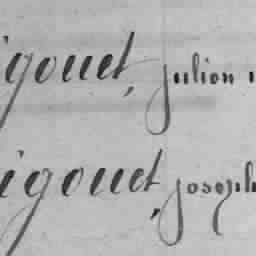 igouet, julion
igouet, joseph